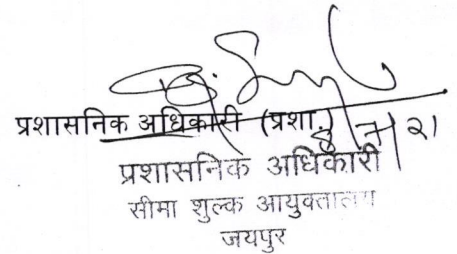 प्रशासनिक अधिकारी (प्रशा.)
प्रशासनिक अधिकारी
सीमा शुल्क आयुक्तालय
जयपुर